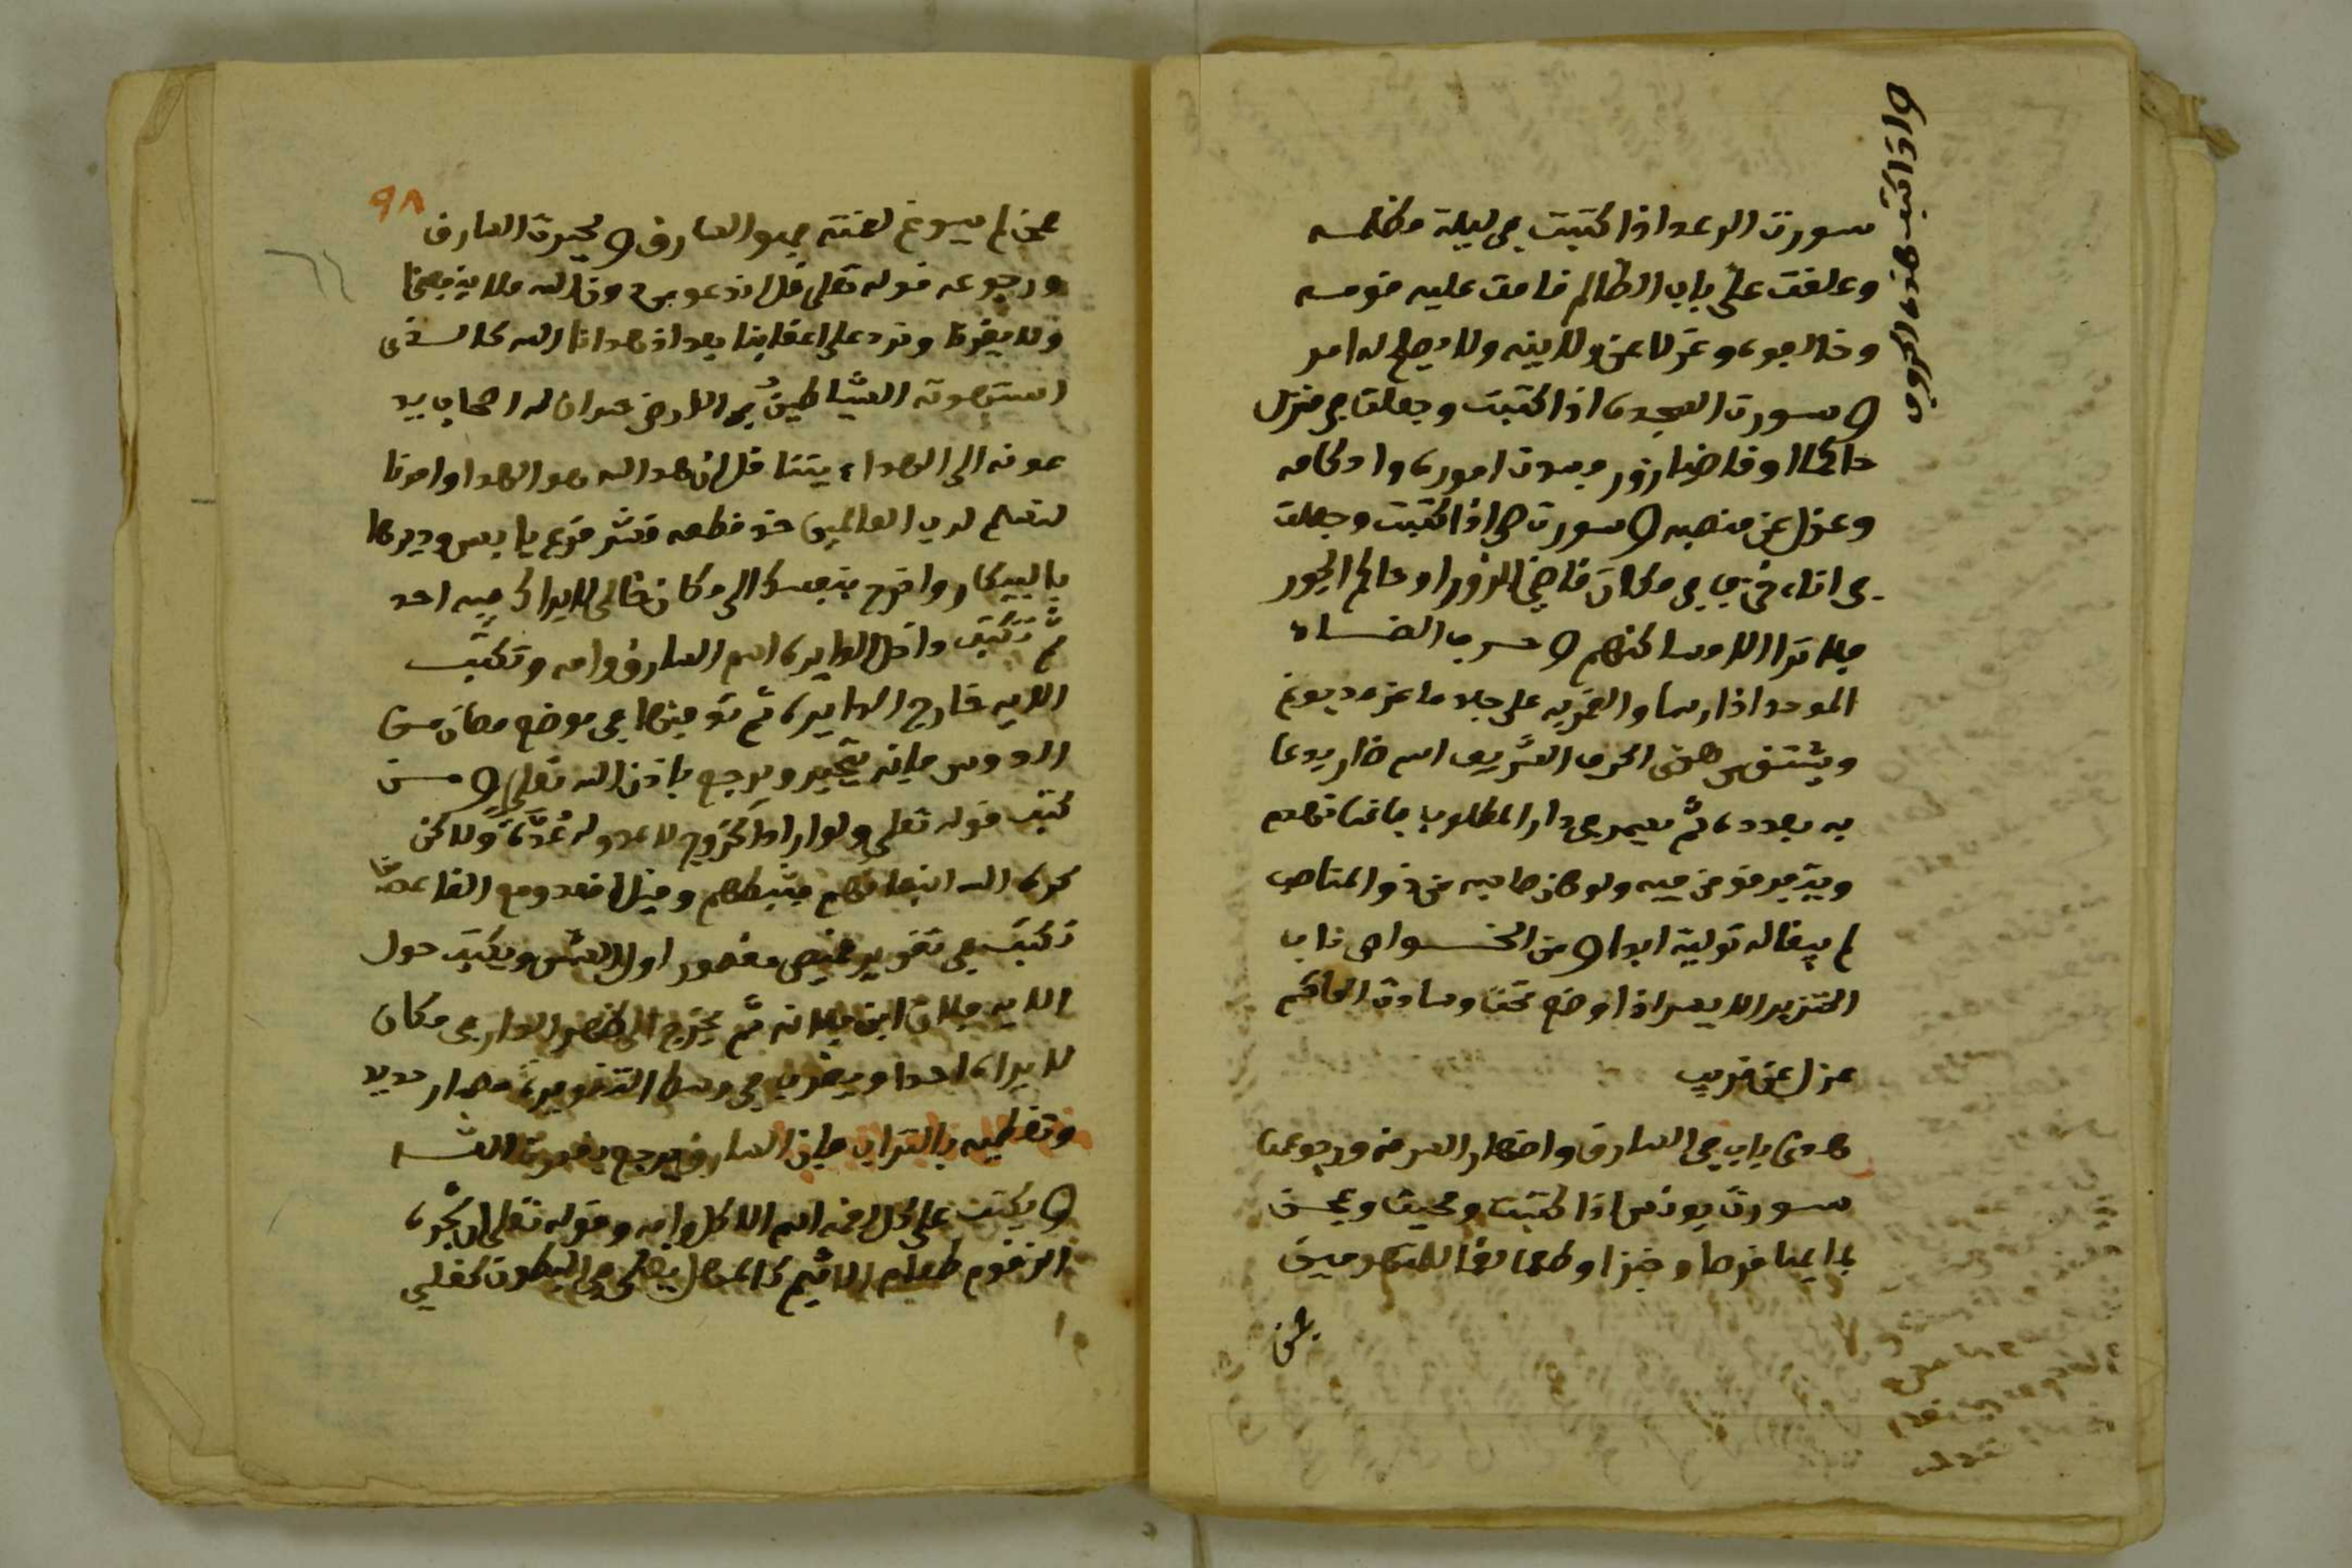 واذا كتبت هذه الحروف
سورت الرعد اذا كتبت في ليلة مظلمه
وعلقت على باب الظالم قامت عليه قومه
وخالفوه وعزل عن ولايته ولا يصلح له امر
وسورت السجده اذا كتبت وجعلت في منزل
حاكما او قاضيا زور فسدت اموره واحكامه
وعزل عن منصبه وسورت ص اذا كتبت وجعلت
في اناء في مكان قاضي الزور او حاكم الجور
فلا ترا الا مساكنهم وحرف الضاد
الموحد اذا رسما والقمر به على جلد ماعز مديوغ
ويشتق من هذا الحرف الشريف اسم ضار يدعا
به بعدده ثم يعمر في دار المطلوب فانها تهدم
ولو كان صاحبه من ذو المناصب
لم يبقا له توليه ابدا ومن الخواص ناب
الخنزير الايسر اذا وضع تحت وسادت الحاكم
عزل عن قريب
هذا باب في السارق واظهار السرقه ورجوعها
سورت يونس اذا كتبت ومحيت وعجن
بمايها قرصا وخبزا وطعامها للمتهومين
فمن
٩٨
فمن لم يسوغ لقمته فهو السارق ولحيرت السارق
ورجوعه قوله تعلى قل اندعو من دون الله ما لا ينفعنا
ولا يضرنا ونرد على اعقابنا بعد اذ هدانا الله كالذي
استهوته الشياطين في الارض حيران له اصحاب يد
عونه الى الهدا ايتنا قل ان هدا الله هو الهدا وامرنا
لنسلم لرب العالمين خذ قطعه قشر قرع يابس وديرها
بالبيكار واخرج بنفسك الى مكان خالي لايراك فيه احد
ثم تكتب داخل الدايره اسم السارق وامه وتكتب
الايه خارج الدايره ثم تدفنها في موضع مصان من
الدوس فانه يتحير ويرجع باذن الله تعلى ومن
كتب قوله تعلى ولو ارادوا الخروج لاعدو له عده ولاكن
كره الله انبعاثهم فثبطهم وقيل اقعدو مع القاعدين
تكتب في تقوير قميص مقصور اول الشهر ويكتب حول
الايه فلان ابن فلانه ثم يخرج الى ظهر الدار في مكان
لايراه احدا ويضرب في وسط التقويره مسمار حديد
وتغطيه بالتراب فان السارق يرجع بقدرت الله
ويكتب على كل لقمه اسم الاكل وامه وقوله تعلى ان شجره
الزقوم طعام الاثيم كالمهل يغلي في البطون كغلي